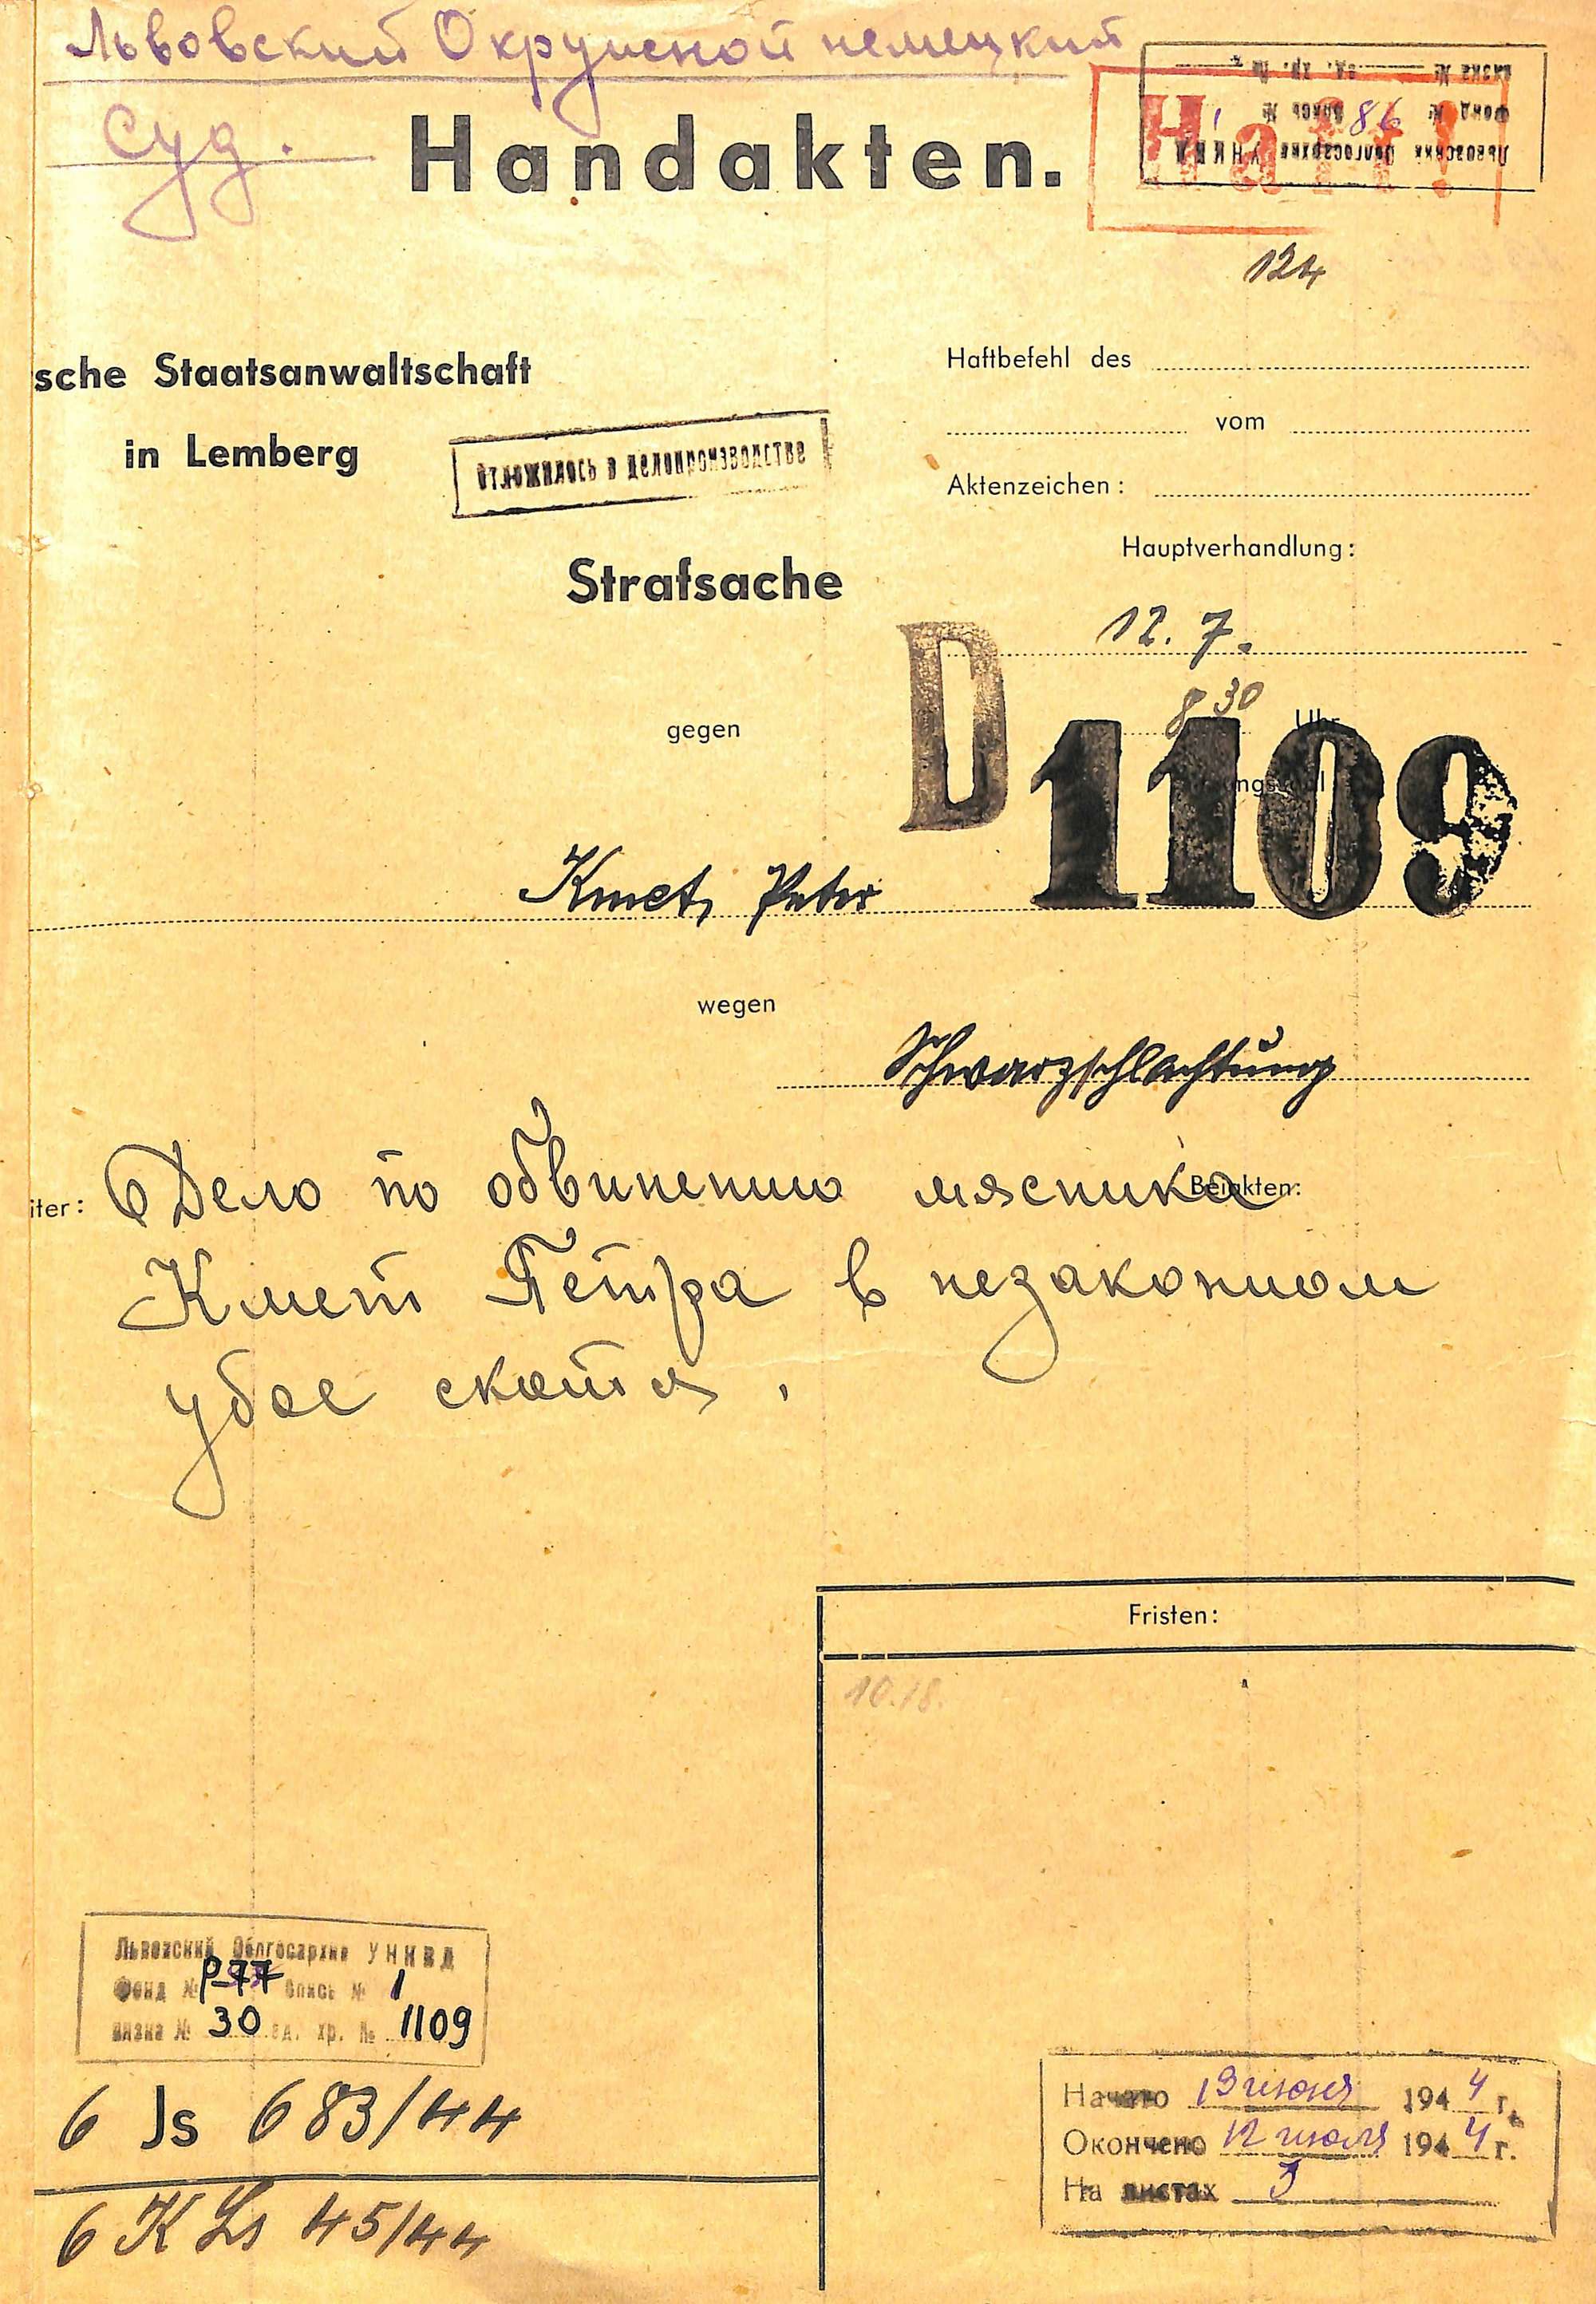 Львовский Окружной немецкий
суд.
Handakten.
Haft!
Львовский Облгосархив УНКВД
Фонд № опись № 86
вязка № ед. хр. №
124
sche Staatsanwaltschaft
in Lemberg
отложилось в делопроизводстве
Haftbefehl des
vom
Aktenzeichen:
Hauptverhandlung:
Strafsache
12. 7.
8 30 Uhr
gegen
D 1109
Kmet, Peter
wegen
Schwarzschlachtung
iter:
Beiakten:
Дело по обвинению мясника
Кмет Петра в незаконном
убое скота.
Fristen:
10./8.
Львовский Облгосархив УНКВД
Фонд № Р-77 Опись № 1
вязка № 30 ед. хр. № 1109
6 Js 683/44
6 K Ls 45/44
Начато 19 июня 1944 г.
Окончено 12 июля 1944 г.
На листах 3